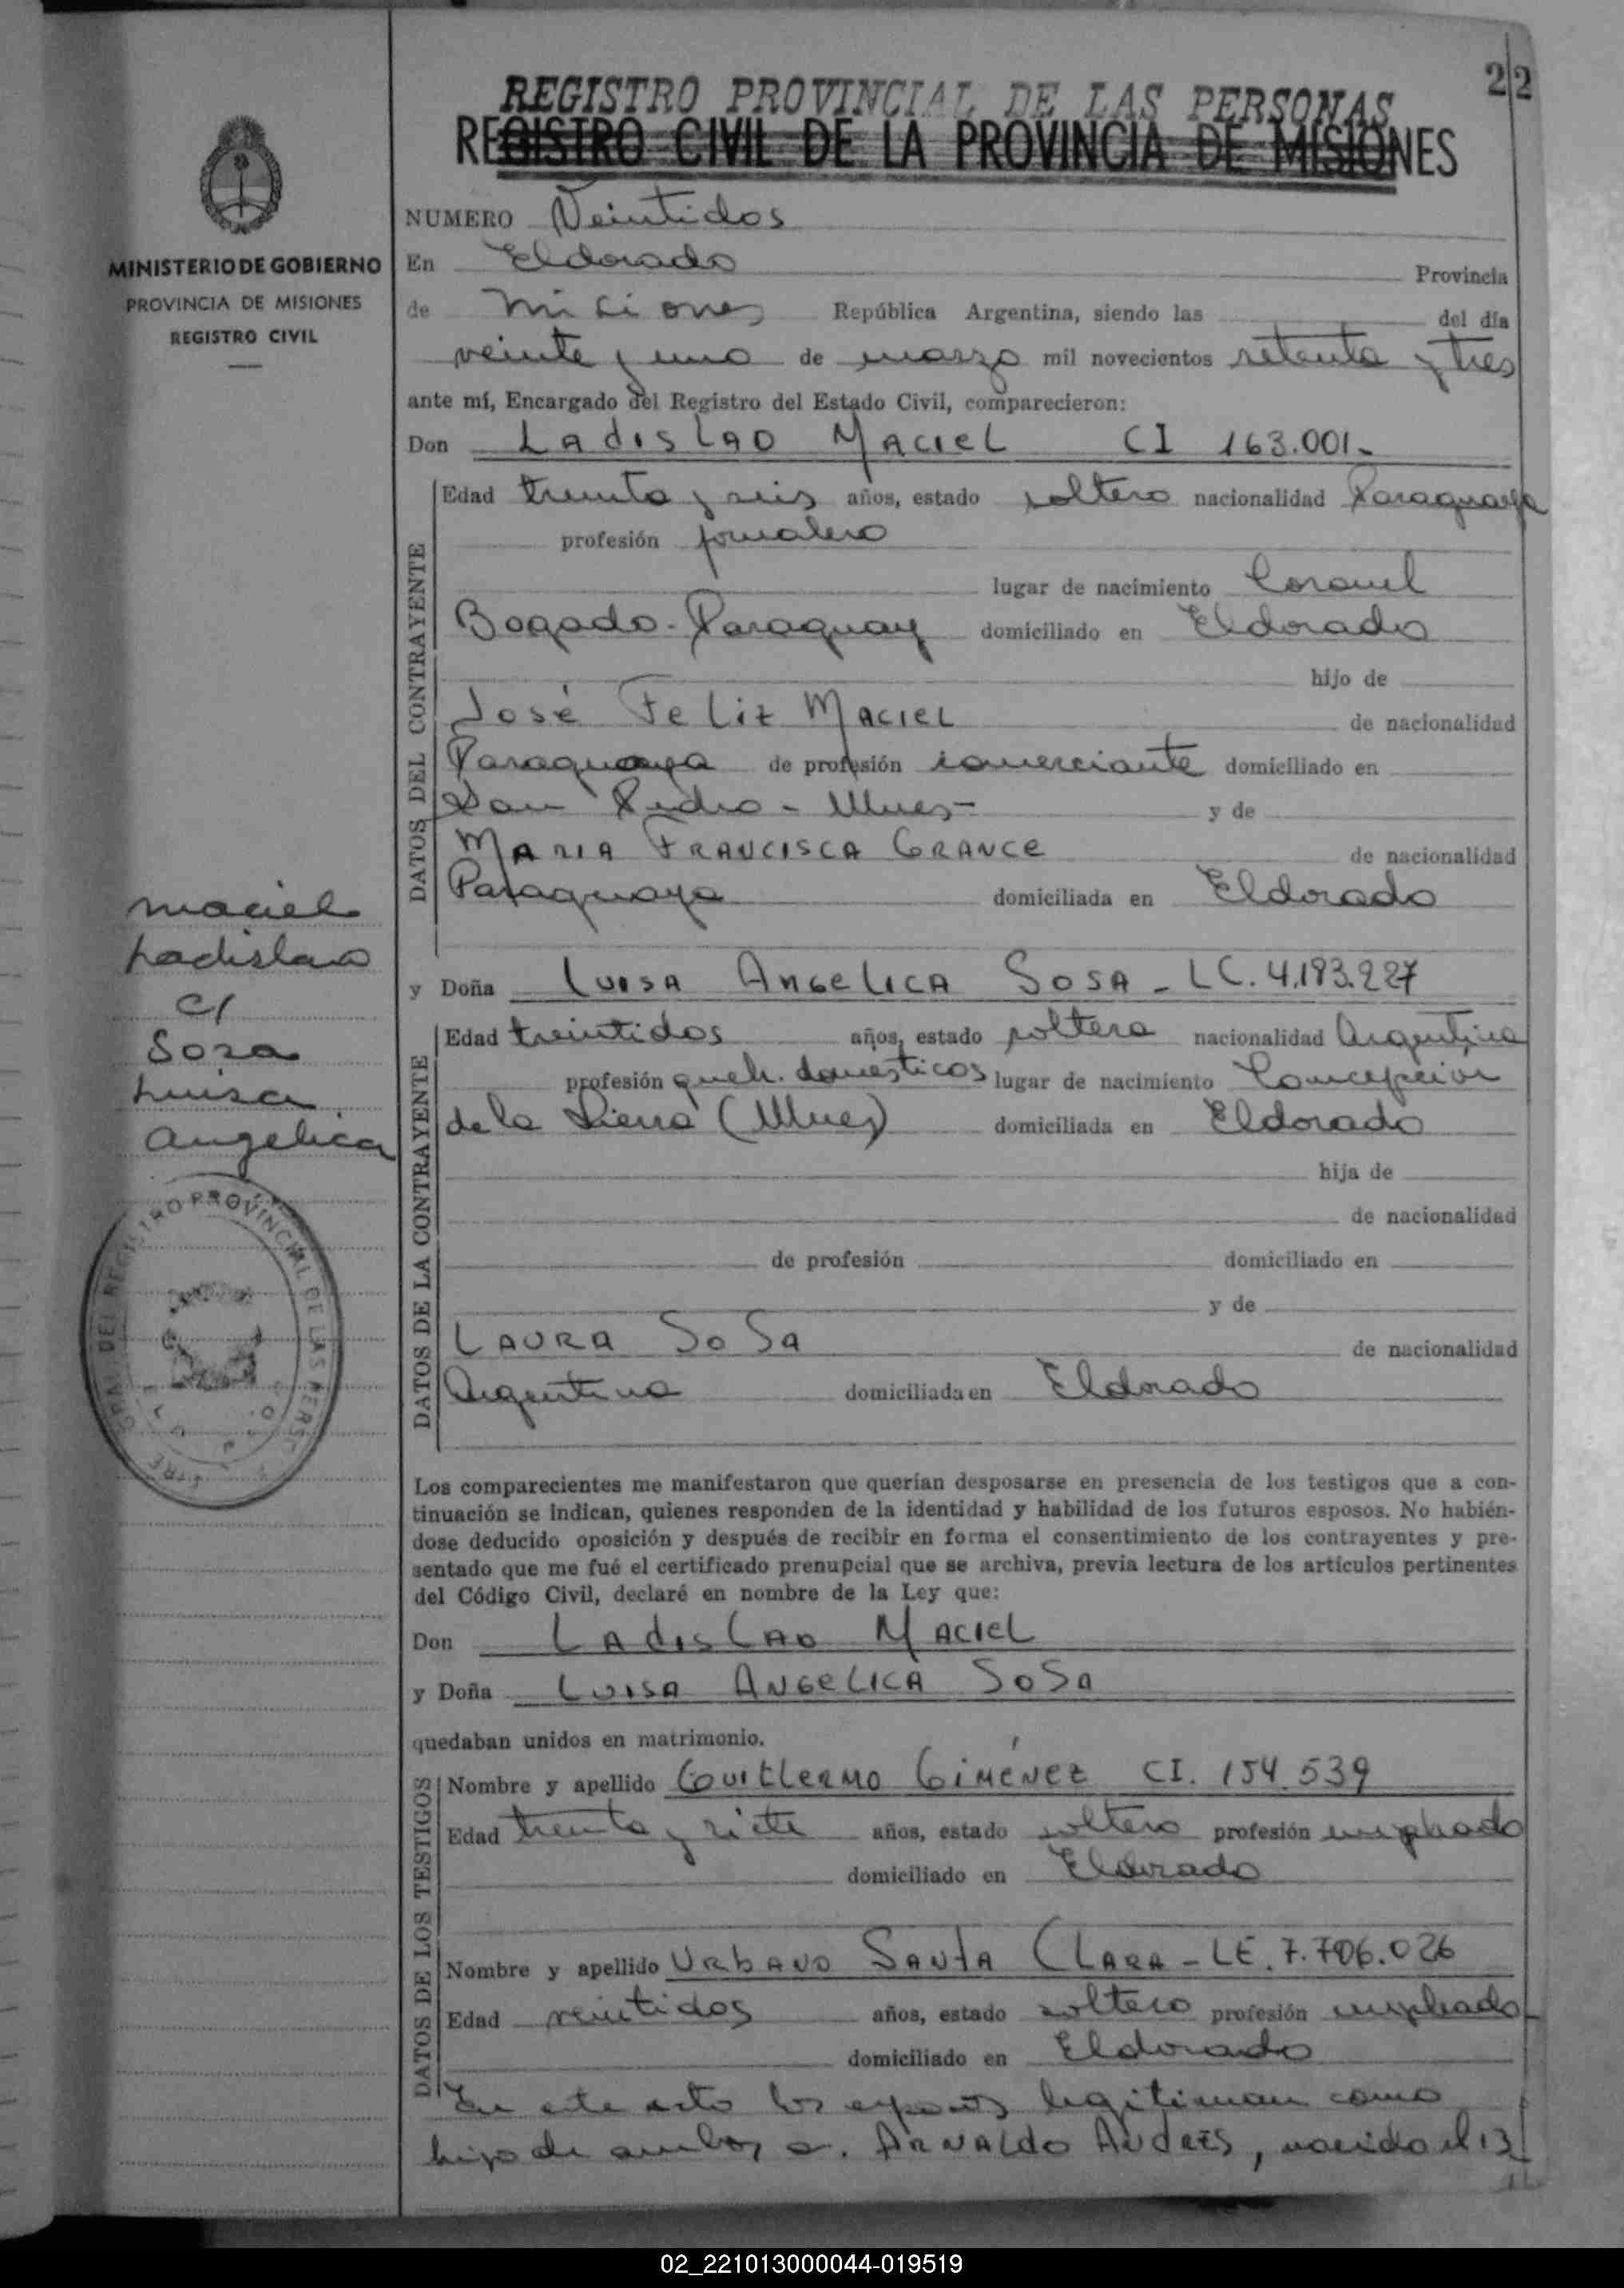 22
REGISTRO PROVINCIAL DE LAS PERSONAS
REGISTRO CIVIL DE LA PROVINCIA DE MISIONES
MINISTERIO DE GOBIERNO
PROVINCIA DE MISIONES
REGISTRO CIVIL
NUMERO Veintidos
En Eldorado Provincia
de Misiones República Argentina, siendo las del día
veinte y uno de marzo mil novecientos setenta y tres
ante mí, Encargado del Registro del Estado Civil, comparecieron:
Don LAdisLAO MACIEL CI 163.001.-
DATOS DEL CONTRAYENTE
Edad treinta y seis años, estado soltero nacionalidad Paraguaya
profesión jornalero
lugar de nacimiento Coronel
Bogado - Paraguay domiciliado en Eldorado
hijo de
José FeLiz MACIEL de nacionalidad
Paraguaya de profesión comerciante domiciliado en
San Pedro - Mnes - y de
MARIA FRANCISCA GRANCE de nacionalidad
Paraguaya domiciliada en Eldorado
maciel
Ladislao
c/
Sosa
Luisa
Angelica
y Doña LUISA ANGeLICA SOSA - LC. 4.193.227
DATOS DE LA CONTRAYENTE
Edad treintidos años, estado soltera nacionalidad Argentina
profesión queh. domesticos lugar de nacimiento Concepcion
de la Sierra (Mnes) domiciliada en Eldorado
hija de
de nacionalidad
de profesión domiciliado en
y de
LAURA SoSa de nacionalidad
Argentina domiciliada en Eldorado
GRAL. DEL REGISTRO PROVINCIAL DE LAS PERS
Los comparecientes me manifestaron que querían desposarse en presencia de los testigos que a con-
tinuación se indican, quienes responden de la identidad y habilidad de los futuros esposos. No habién-
dose deducido oposición y después de recibir en forma el consentimiento de los contrayentes y pre-
sentado que me fué el certificado prenupcial que se archiva, previa lectura de los artículos pertinentes
del Código Civil, declaré en nombre de la Ley que:
Don LAdisLAO MACIEL
y Doña LUISA ANGeLICA SoSa
quedaban unidos en matrimonio.
DATOS DE LOS TESTIGOS
Nombre y apellido GUILLERMO GIMÉNEZ CI. 154.539
Edad treinta y siete años, estado soltero profesión empleado
domiciliado en Eldorado
Nombre y apellido URBANO SANTA CLARA - LE. 7.706.026
Edad veintidos años, estado soltero profesión empleado
domiciliado en Eldorado
En este acto los esposos legitiman como
hijo de ambos a. ARNALdo ANdRES, nacido el 13
02_221013000044-019519